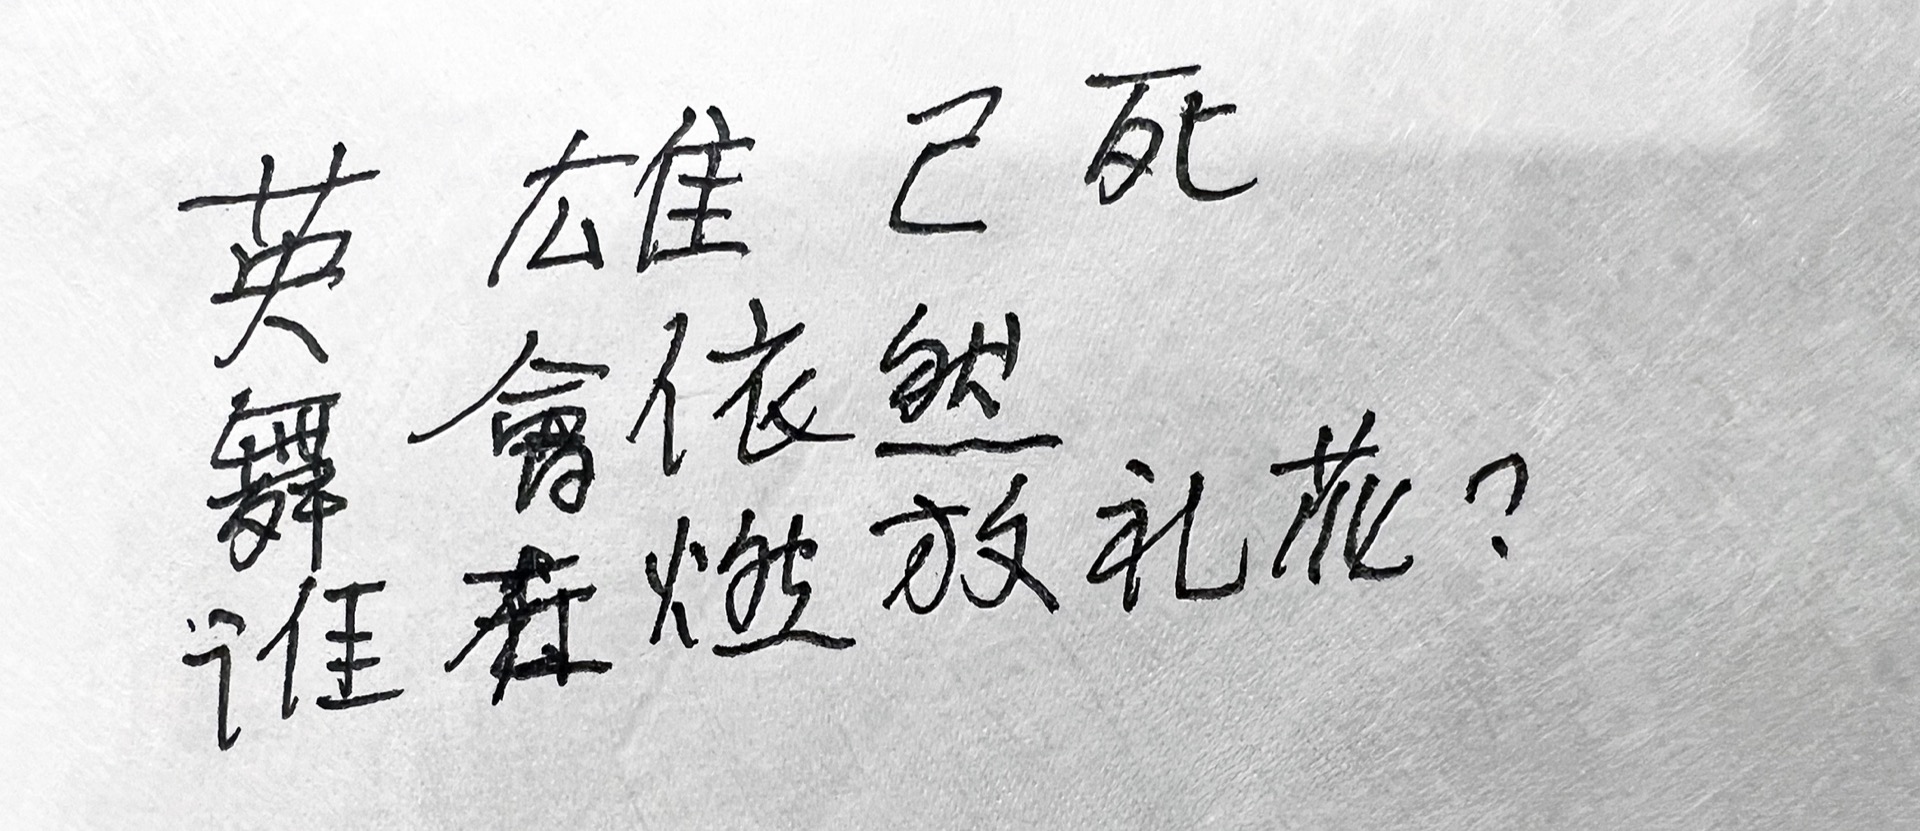 英雄已死
舞會依然
谁在燃放礼花?